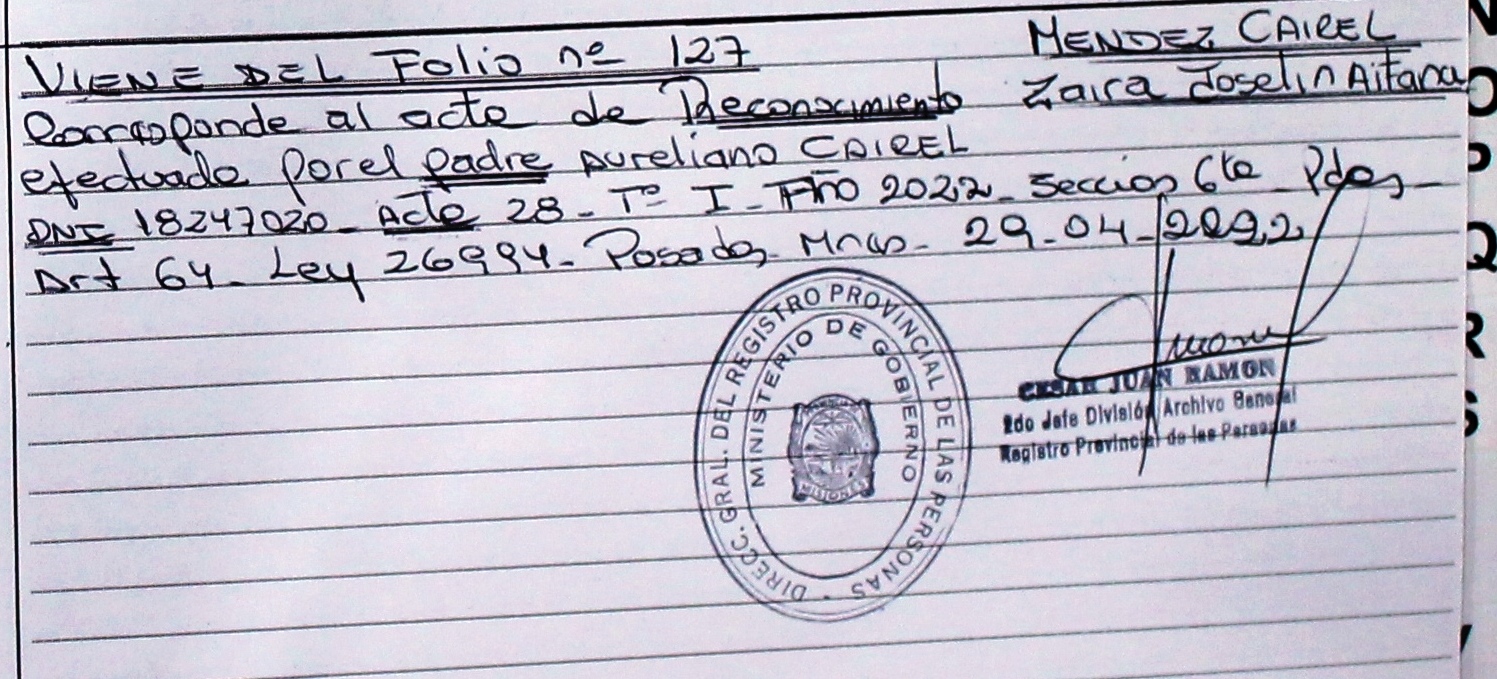 VIENE DEL Folio nº 127
MENDEZ CAIREL
Zaira Joselin Aitana
Corresponde al acta de Reconocimiento
efectuado por el padre Aureliano CAIREL
DNI 18247020_ Acta 28_ Tº I_ Año 2022_ Seccion 6ta_ Pdas_
Art 64_ Ley 26994_ Posadas_ Mnes_ 29_04_2022
DIRECC. GRAL. DEL REGISTRO PROVINCIAL DE LAS PERSONAS
MINISTERIO DE GOBIERNO
MISIONES
CESAR JUAN RAMON
2do Jefe División Archivo General
Registro Provincial de las Personas